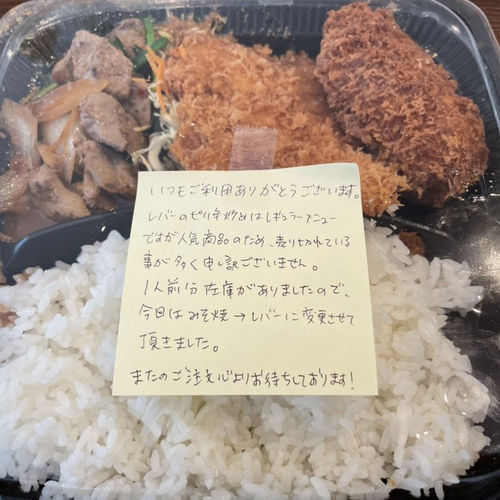 いつもご利用ありがとうございます。
レバーのピリ辛炒めはレギュラーメニュー
ですが人気商品のため、売り切れている
事が多く申し訳ございません。
1人前分在庫がありましたので、
今回はみそ焼→レバーに変更させて
頂きました。
またのご注文心よりお待ちしております!